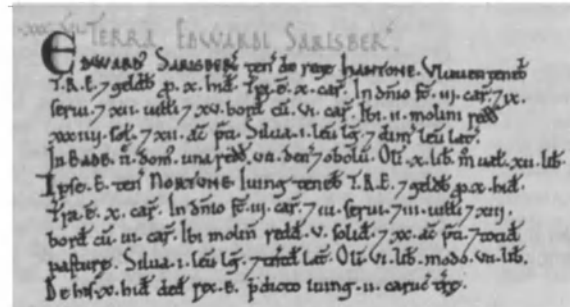 TERRA EDWARDI SARISBER̄.
EDWARD' SARISBER' ten' de rege HANTONE. Vluuen teneb
T.R.E. 7 geldb' p. x. hid'. T'ra. ē. x. car'. In dn̄io st̄. iii. car'. 7 ix.
serui. 7 xii. uilli 7 xv. bord' cū. vi. car'. Ibi. ii. molini redd'
xxxiiii. sol'. 7 xii. ac̄ p̄ti. Silua. i. leu lḡ. 7 dim' leu lat'.
In BADE. ii. dom'. una redd'. vii. den' 7 obolū. Olī. x. lib'. m̊ ual'. xii. lib'.
Ipse. E. ten' NORTUNE. Iuing teneb' T.R.E. 7 geldb' p. x. hid'.
T'ra. ē. x. car'. In dn̄io st̄. iii. car'. 7 iii. serui. 7 iii. uilli 7 xiii.
bord' cū. iii. car'. Ibi molin' redd'. v. solid'. 7 xx. ac̄ p̄ti. 7 tn̄tid'
pasturę. Silua. i. leu lḡ. 7 tn̄tid' lat'. Olī. vi. lib'. modo. vii. lib'.
De his. x. hid' ded' rex. E. p̄dicto Iuing. ii. caruc' t'rę.